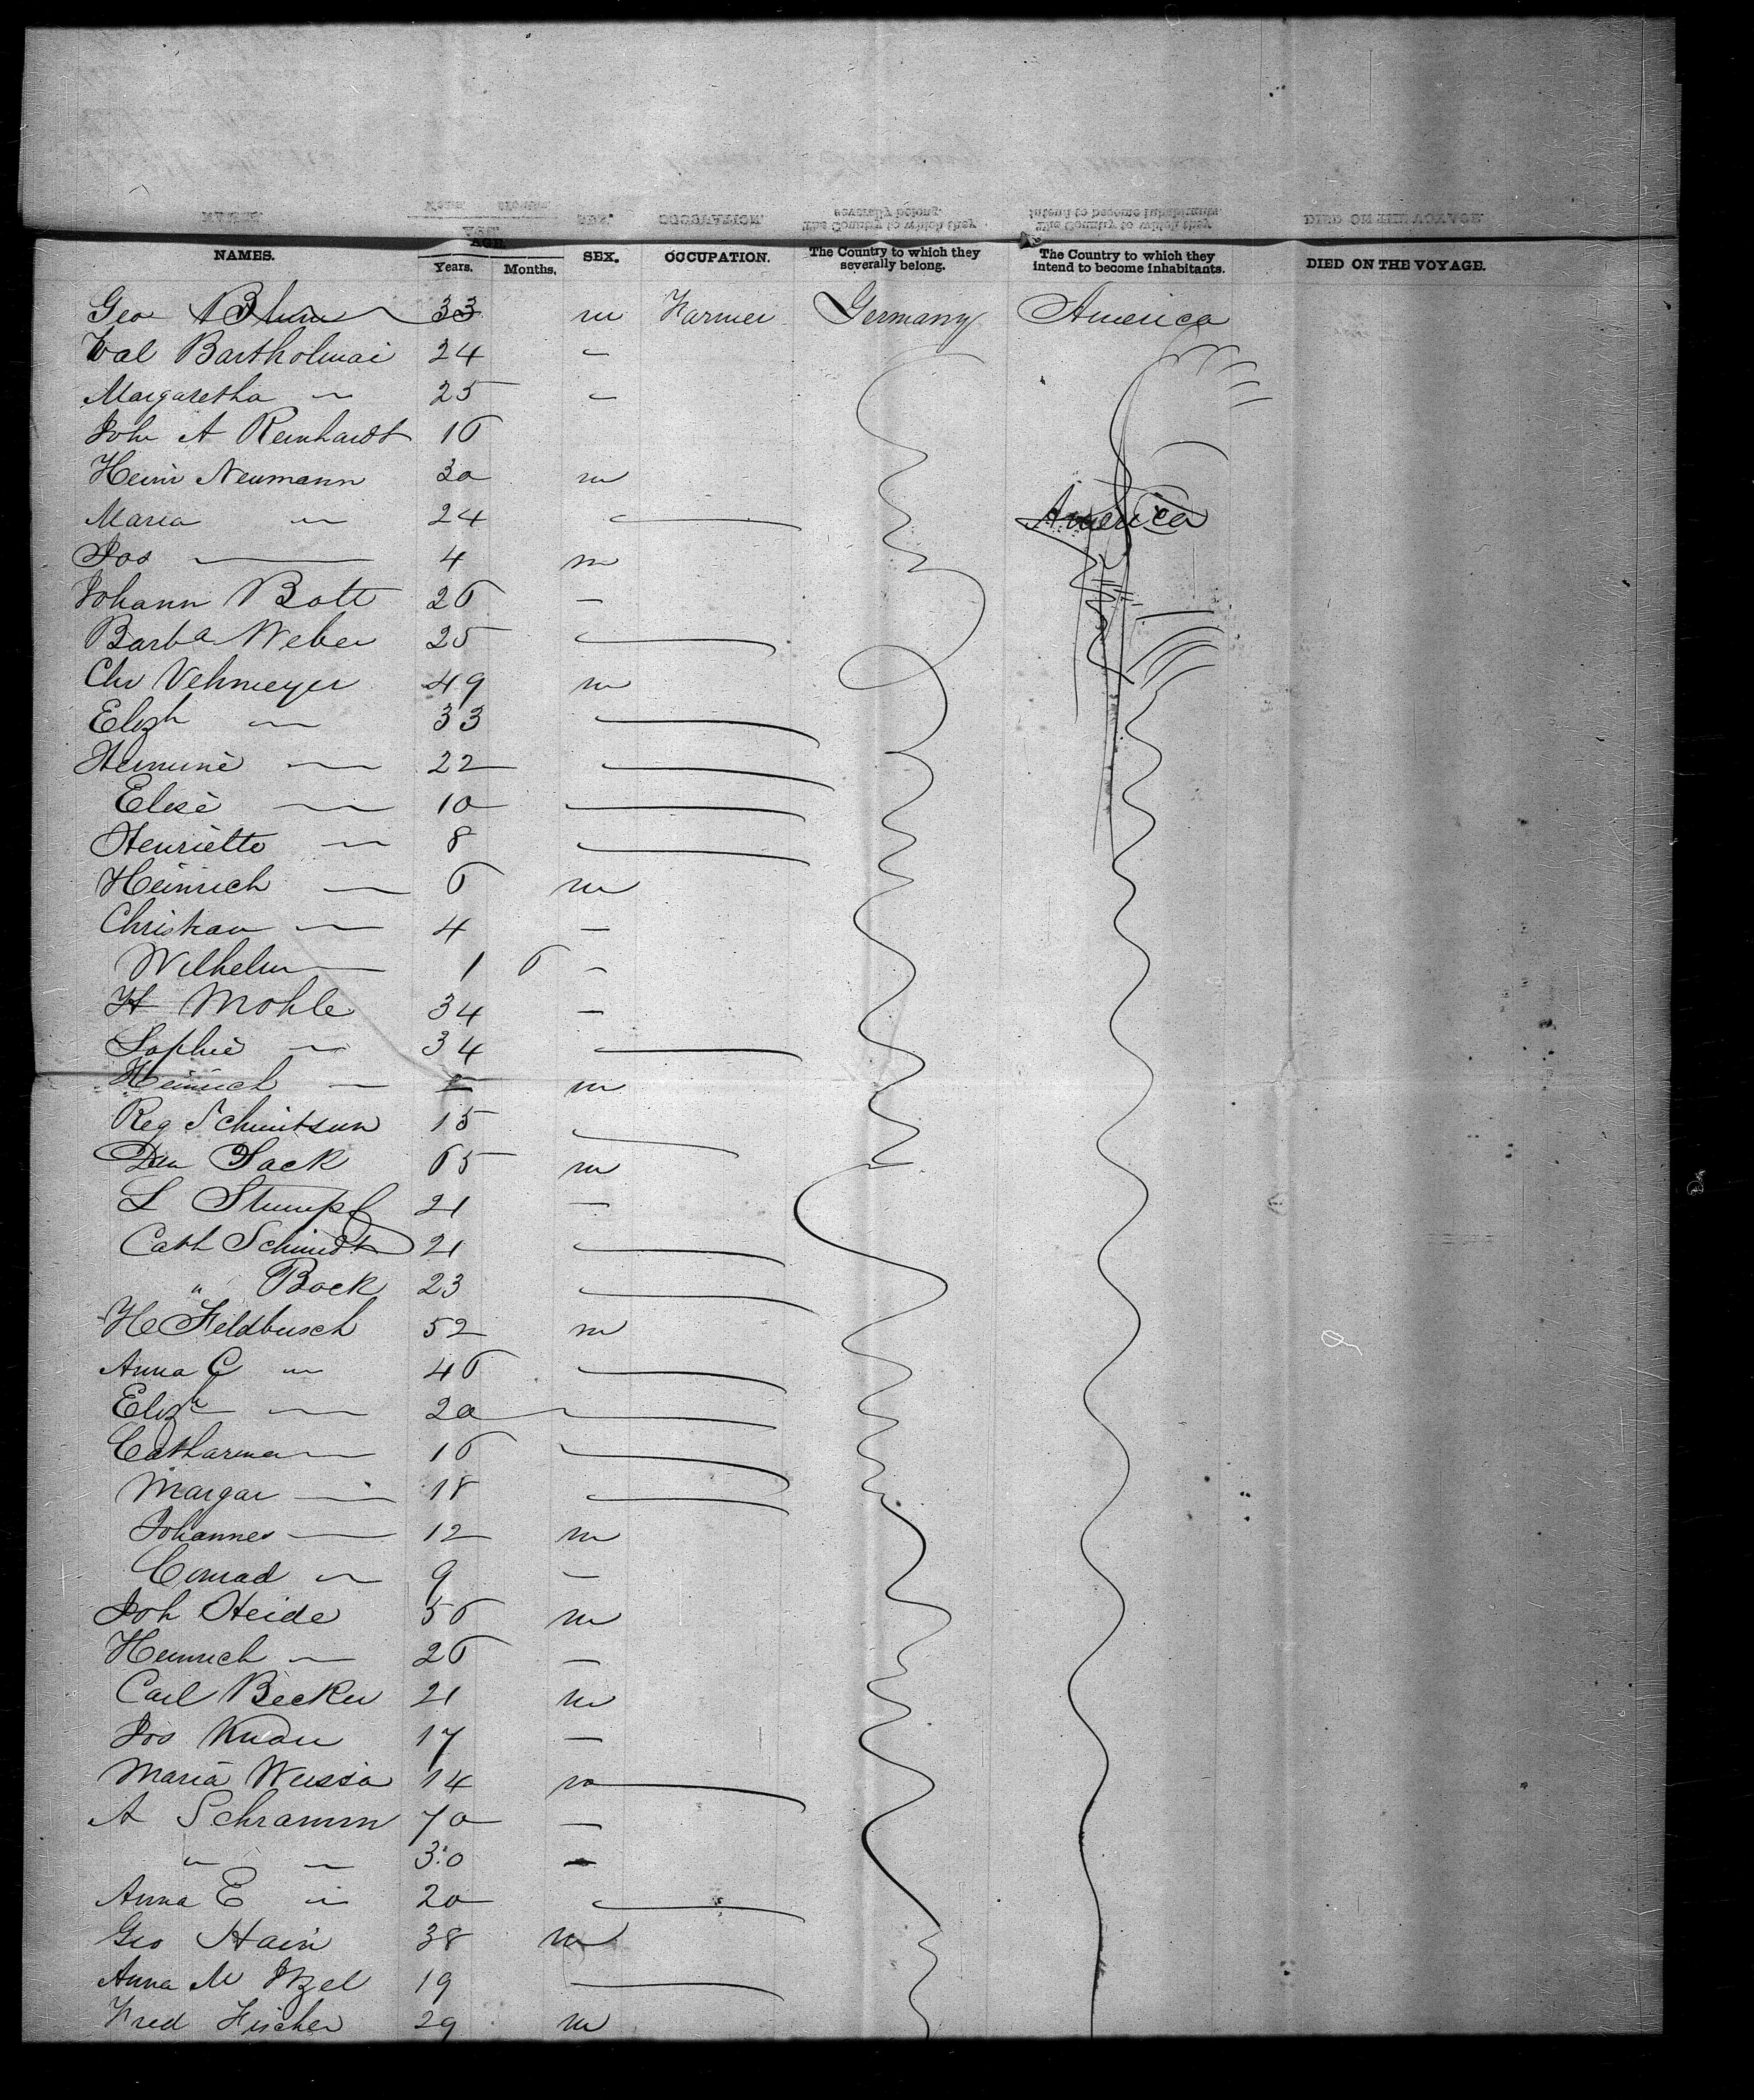 NAMES.
AGE.
Years. Months.
SEX.
OCCUPATION.
The Country to which they severally belong.
The Country to which they intend to become inhabitants.
DIED ON THE VOYAGE.
Geo Blum 33 m Farmer Germany America
Val Bartholmai 24 —
Margaretha — 25 —
Joh A Reinhardt 16
Heinr Neumann 30 m
Maria — 24 — America
Jos — 4 m
Johann Bott 26 —
Barba Weber 25 —
Chr Vehmeyer 49 m
Elizh — 33 —
Hermine — 22 —
Elise — 10 —
Henriette — 8 —
Heinrich — 6 m
Christian — 4 —
Wilhelm — 1 6 —
H Mohle 34 —
Sophie — 34 —
Heinrich — m
Reg Schmitsun 15 —
Sack 65 m
L Stumpf 21 —
Cath Schmidt 21 —
" Bock 23 —
He Feldbusch 52 m
Anna C — 46 —
Elizh — 20 —
Catharina — 16 —
Margar — 18 —
Johannes — 12 m
Conrad — 9 —
Joh Heide 56 m
Heinrich — 26 —
Carl Becker 21 m
Jos Knau 17 —
Maria 14 m —
A Schramm 70 —
" — 30 —
Anna E — 20 —
Geo Hain 38 m
Anna M Itzel 19 —
Fred Fischer 29 m